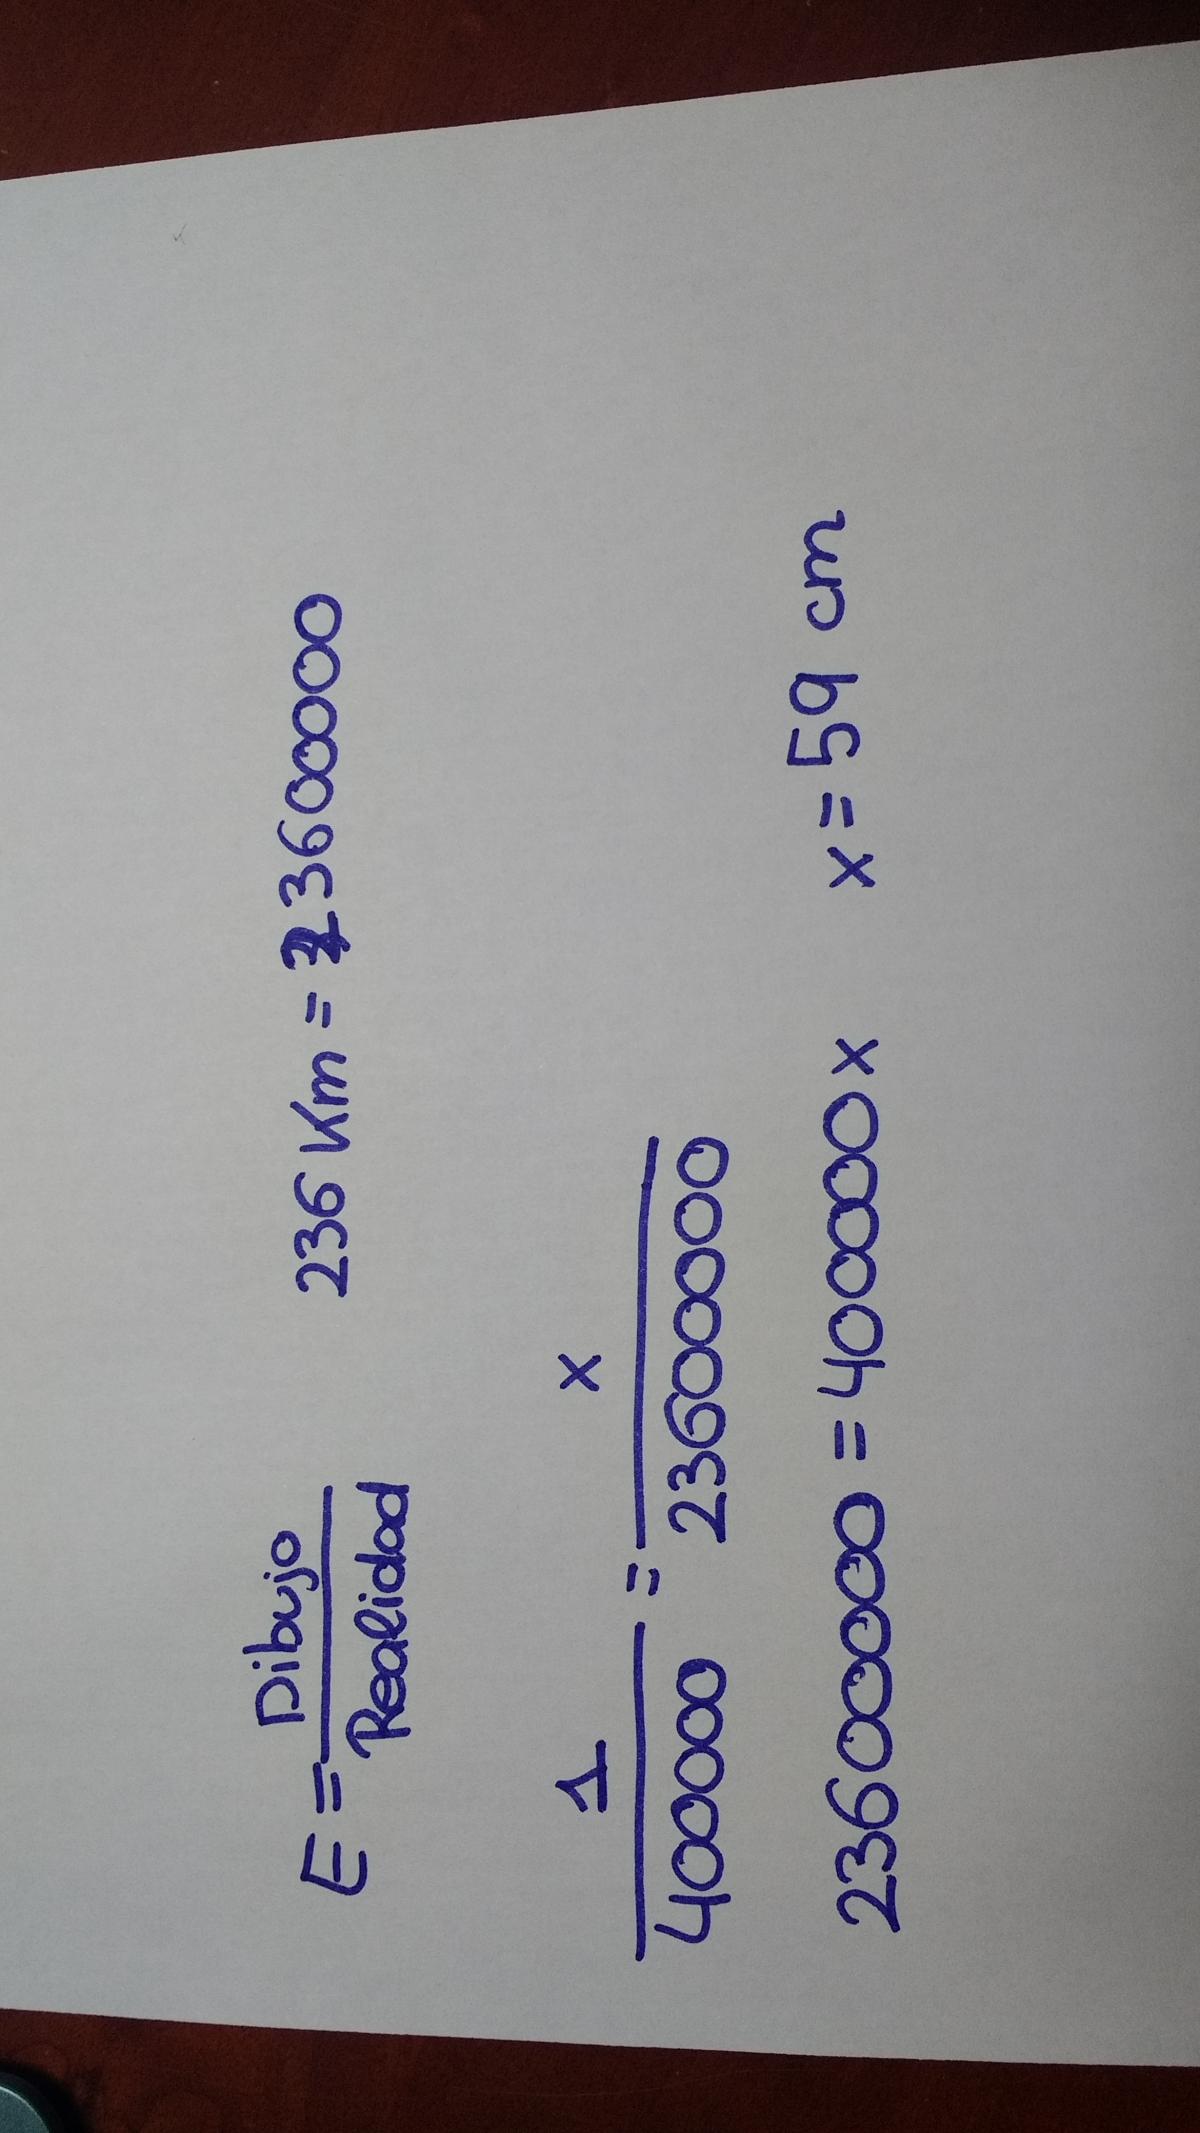 E = Dibujo / Realidad 236 Km = 23600000
1 / 400000 = x / 23600000
23600000 = 400000 x x = 59 cm